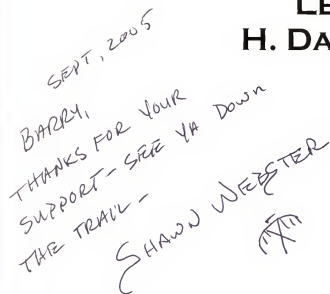 LE
H. DA
SEPT, 2005
BARRY,
THANKS FOR YOUR
SUPPORT - SEE YA DOWN
THE TRAIL -
SHAWN WEBSTER